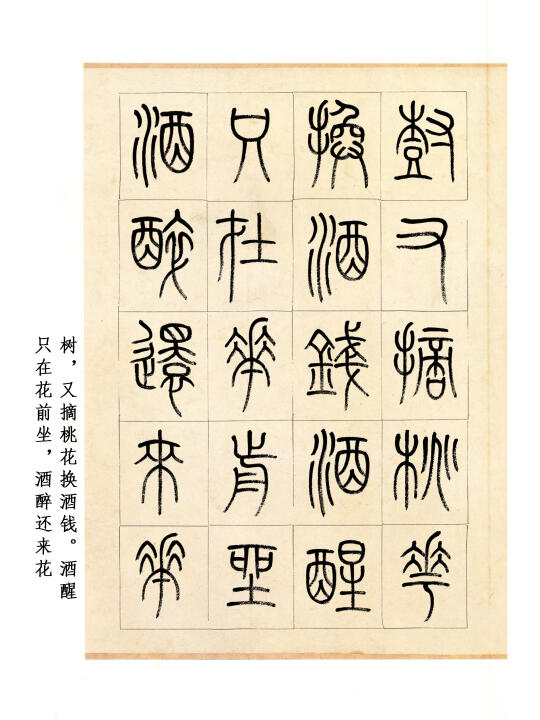 尌又摘桃華
換酒錢酒醒
只在華前坐
酒醉還來華
树，又摘桃花换酒钱。酒醒
只在花前坐，酒醉还来花